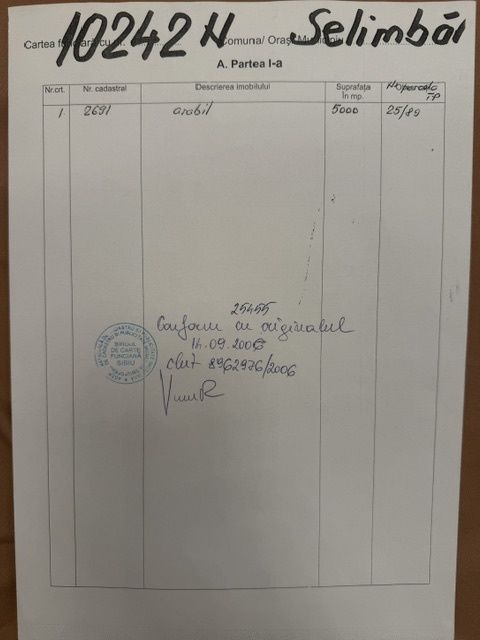 Cartea funciară cu nr. 10242 N Comuna/ Oraș/ Municipiu Selimbăr
A. Partea I-a
Nr.crt. Nr. cadastral Descrierea imobilului Suprafața în mp. Nr parcela TP
1. 2691 arabil 5000 25/89
25455
Conform cu originalul
14.09.2006
chit 8962976/2006
BIROUL
DE CARTE
FUNCIARĂ
SIBIU